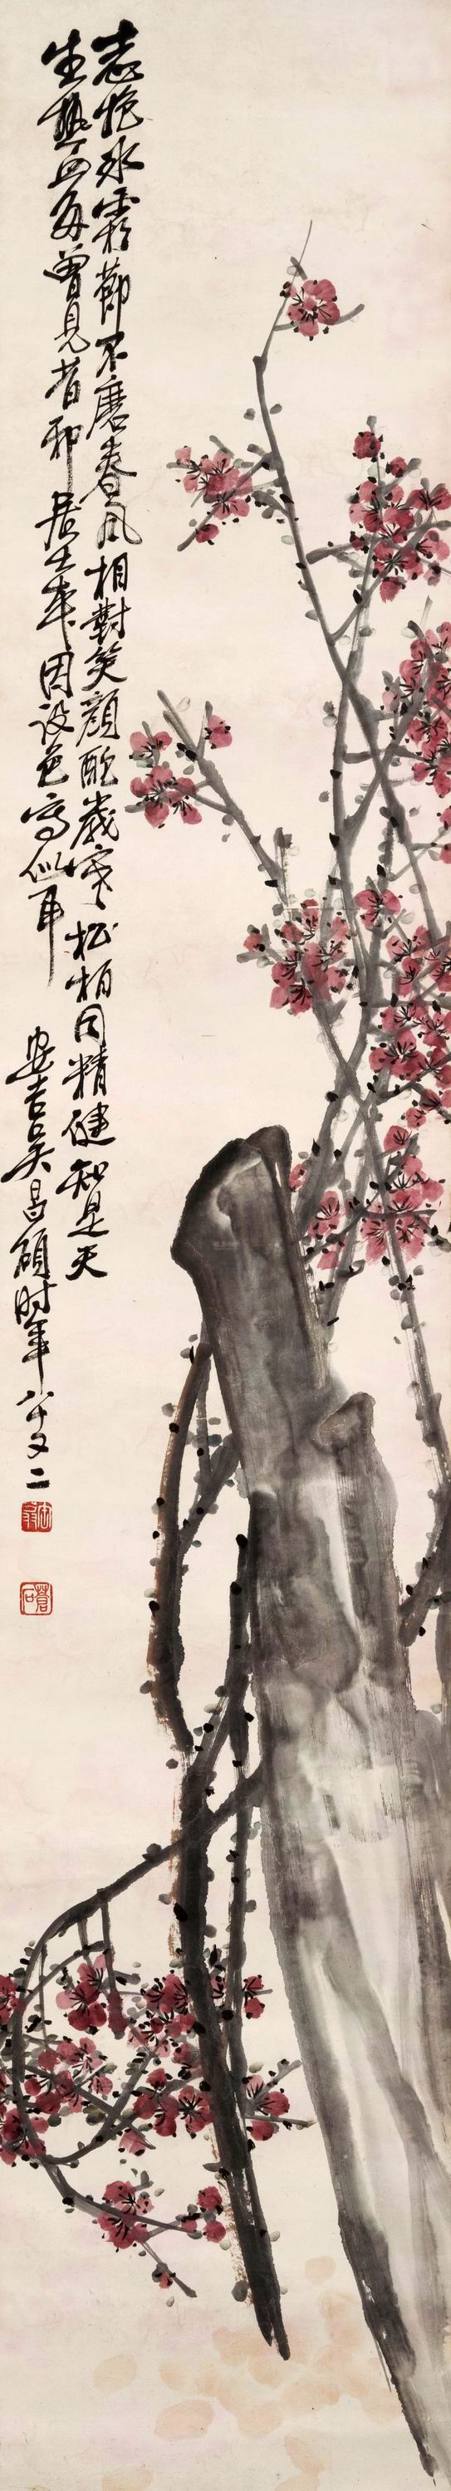 志抱冰霜節不磨春風相對笑顏酡歲寒松柏同精健知是天
生熱血多曾見昔邪居士本因設色寫似耳
安吉吳昌碩時年八十又二
蒼石